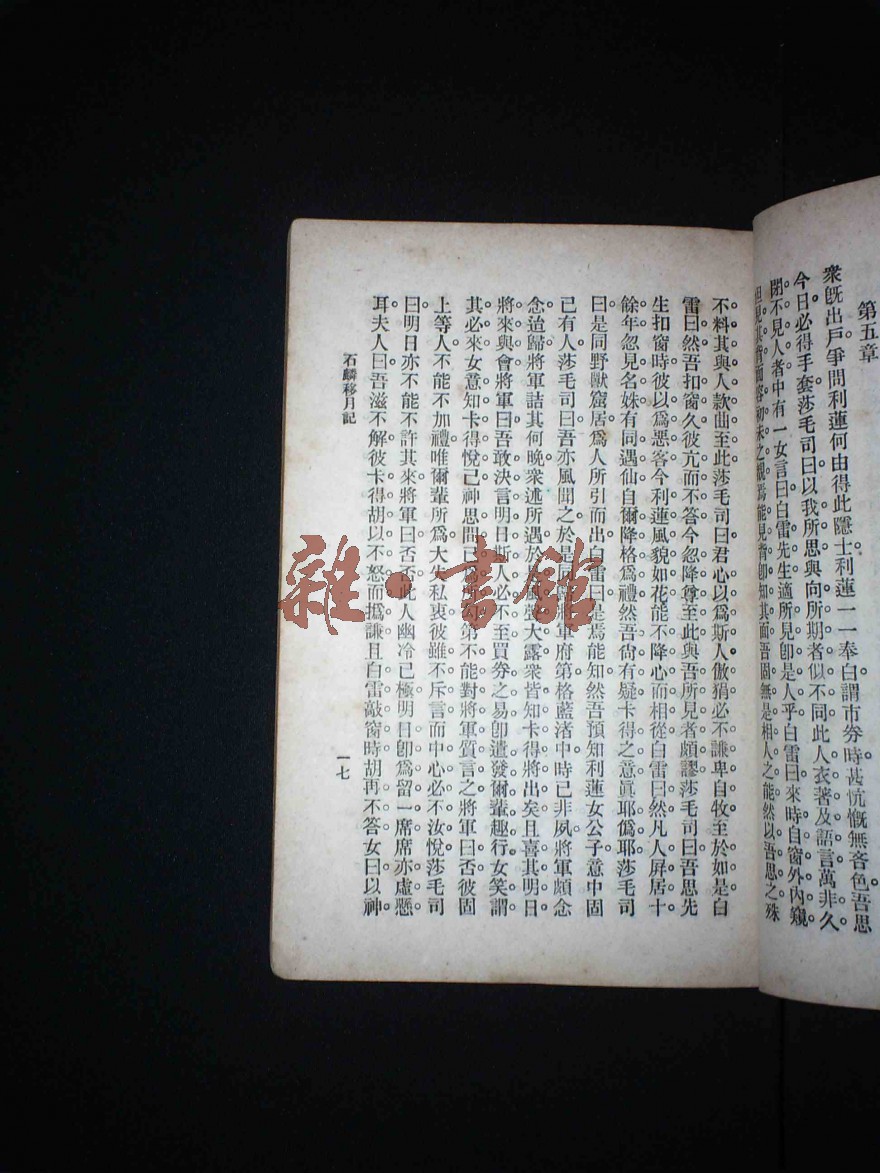 第五章
衆旣出戶爭問利蓮何由得此隱士利蓮一一奉白謂市劵時甚忼慨無吝色吾思
今日必得手套莎毛司曰以我所思與向所期者似不同此人衣著及語言萬非久
閉不見人者中有一女言曰白雷先生適所見卽是人乎白雷曰來時自窗外內窺
但見其背面容初未之覩焉能見背卽知其面吾固無是相人之能然以吾思之殊
不料其與人款曲至此莎毛司曰君心以爲斯人傲狷必不謙卑自牧至於如是白
雷曰然吾扣窗久彼亢而不答今忽降尊至此與吾所見者頗謬莎毛司曰吾思先
生扣窗時彼以爲惡客今利蓮風貌如花能不降心而相從白雷曰然凡人屛居十
餘年忽見名姝有同遇仙自爾降格爲禮然吾尙有疑卡得之意眞耶僞耶莎毛司
曰是同野獸窟居爲人所引而出白雷曰是焉能知然吾預知利蓮女公子意中固
已有人莎毛司曰吾亦風聞之於是同將軍府第格藍渚中時已非夙將軍頗念
念迨歸將軍詰其何晚衆述所遇於風聲大露衆皆知卡得將出矣且喜其明日
將來與會將軍曰吾敢決言明日斯人必不至買劵之易卽遣發爾輩趣行女笑謂
其必來女意知卡得悅己神思間已第不能對將軍質言之將軍曰否彼固
上等人不能不加禮唯爾輩所爲大失私衷彼雖不斥言而中心必不汝悅莎毛司
曰明日亦不能不許其來將軍曰否否此人幽冷已極明日卽爲留一席席亦虛懸
耳夫人曰吾滋不解彼卡得胡以不怒而撝謙且白雷敲窗時胡再不答女曰以神
石麟移月記
一七
雜·書館